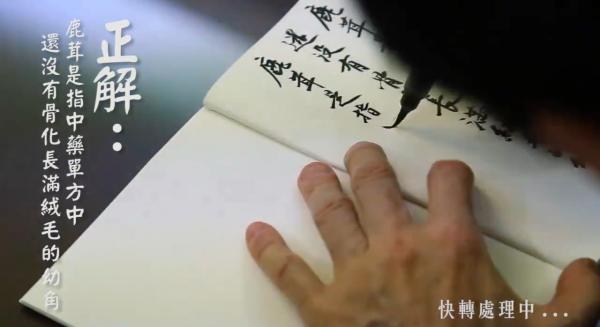 正解：
鹿茸是指中藥單方中
還沒有骨化長滿絨毛的幼角
鹿茸
還沒有骨長滿
鹿茸是指
快轉處理中...